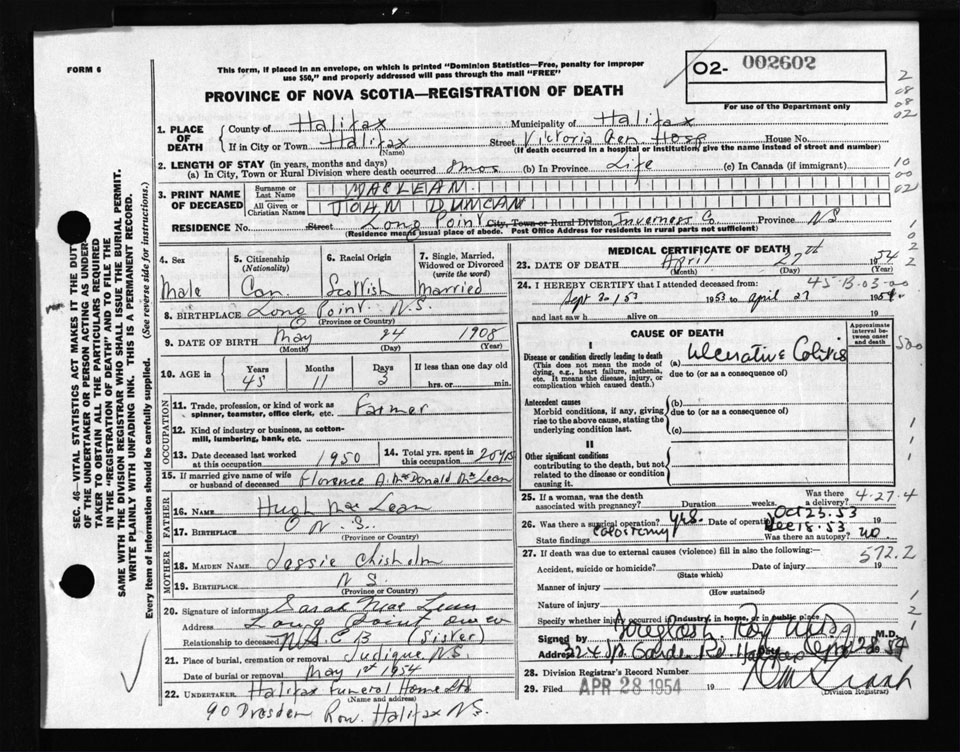 FORM 6
This form, if placed in an envelope, on which is printed "Dominion Statistics—Free, penalty for improper
use $50," and properly addressed will pass through the mail "FREE"
PROVINCE OF NOVA SCOTIA—REGISTRATION OF DEATH
02- 002602
For use of the Department only
SEC. 46—VITAL STATISTICS ACT MAKES IT THE DUTY
OF THE UNDERTAKER OR PERSON ACTING AS UNDER-
TAKER TO OBTAIN ALL THE PARTICULARS REQUIRED
IN THE "REGISTRATION OF DEATH" AND TO FILE THE
SAME WITH THE DIVISION REGISTRAR WHO SHALL ISSUE THE BURIAL PERMIT.
WRITE PLAINLY WITH UNFADING INK. THIS IS A PERMANENT RECORD.
Every item of information should be carefully supplied. (See reverse side for instructions.)
1. PLACE OF DEATH
County of Halifax Municipality of Halifax
If in City or Town Halifax Street Viktoria Gen. Hosp House No.
(Name) (If death occurred in a hospital or institution, give the name instead of street and number)
2. LENGTH OF STAY (in years, months and days)
(a) In City, Town or Rural Division where death occured 8mos (b) In Province Life (c) In Canada (if immigrant)
3. PRINT NAME OF DECEASED
Surname or Last Name MACLEAN
All Given or Christian Names JOHN DUNCAN
RESIDENCE No. Street Long Point City, Town or Rural Division Inverness Co. Province NS
(Residence means usual place of abode. Post Office Address for residents in rural parts not sufficient)
4. Sex Male
5. Citizenship (Nationality) Can.
6. Racial Origin Scottish
7. Single, Married, Widowed or Divorced (write the word) Married
8. BIRTHPLACE Long Point. N.S.
(Province or Country)
9. DATE OF BIRTH May 24 1908
(Month) (Day) (Year)
10. AGE in Years 45 Months 11 Days 3 If less than one day hrs. or min.
OCCUPATION
11. Trade, profession, or kind of work as spinner, teamster, office clerk, etc. Farmer
12. Kind of industry or business, as cotton-mill, lumbering, bank, etc.
13. Date deceased last worked at this occupation 1950
14. Total yrs. spent in this occupation 20yrs
15. If married give name of wife or husband of deceased Florence A. McDonald McLean
FATHER
16. Name Hugh Mac Lean
17. Birthplace N.S.
(Province or Country)
MOTHER
18. MAIDEN NAME Jessie Chisholm
19. BIRTHPLACE N.S.
(Province or Country)
20. Signature of informant Sarah MacLean
Address Long Point Inver
Relationship to deceased N.S. C B (Sister)
21. Place of burial, cremation or removal Judique N.S.
Date of burial or removal May 1st 1954
22. UNDERTAKER Halifax Funeral Home Ltd
(Name and address)
90 Dresden Row. Halifax N.S.
MEDICAL CERTIFICATE OF DEATH
23. DATE OF DEATH April 27th 1954
(Month) (Day) (Year)
24. I HEREBY CERTIFY that I attended deceased from: 45-B-03-00
Sept 20/53 1953 to april 27 1954
and last saw h alive on
CAUSE OF DEATH
Approximate interval between onset and death
I
Disease or condition directly leading to death
(This does not mean the mode of dying, e.g., heart failure, asthenia, etc. It means the disease, injury, or complication which caused death.)
(a) Ulcerative Colitis
due to (or as a consequence of)
Antecedent causes
Morbid conditions, if any, giving rise to the above cause, stating the underlying condition last.
(b)
due to (or as a consequence of)
(c)
II
Other significant conditions
contributing to the death, but not related to the disease or condition causing it.
25. If a woman, was the death associated with pregnancy? Duration weeks. Was there a delivery? 4-27-4
26. Was there a surgical operation? yes. Date of operation Oct 23.53 19
Dec 18.53
State findings Colostomy Was there an autopsy? no.
27. If death was due to external causes (violence) fill in also the following:— 572.2
Accident, suicide or homicide? Date of injury 19
(State which)
Manner of injury
(How sustained)
Nature of injury
Specify whether injury occurred in industry, in home, or in public place
Signed by M.D.
Address Garden Rd. Halifax
28. Division Registrar's Record Number
29. Filed APR 28 1954 19
(Division Registrar)
2
08
08
02
10
00
02
1
0
2
2
500
1
1
1
2
1